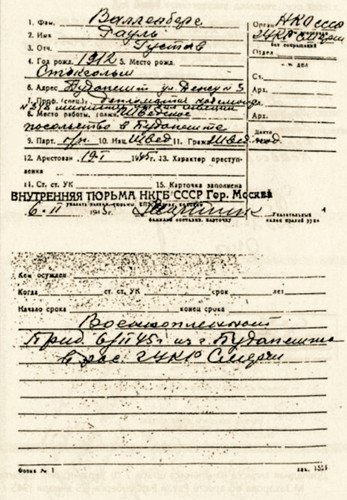 1. Фам. Валленберг
Орган НКО СССР
2. Имя Рауль
ГУКР Смерш
3. Отч. Густав
Отдел
4. Год рожд. 1912 5. Место рожд.
Стокгольм
Ст.
6. Адрес Будапешт ул.
Арх.
7. Проф. (спец.)
Арх.
8. Место работы, должн. Шведское
посольство в Будапеште
Дата
9. Парт. б/п. 10. Нац. Швед 11. Граж. Швед. под
12. Арестован 19-I 1945 г. 13. Характер преступ-
ления
14. Ст. ст. УК 15. Карточка заполнена
ВНУТРЕННЯЯ ТЮРЬМА НКГБ СССР Гор. Москва
6. II 1945 г.
Указательный
палец правой руки
Кем осужден
Когда ст. ст. УК срок лет
Начало срока конец срока
Военнопленный
Приб. 6/II 45 г. из г. Будапешта
в рас. ГУКР Смерш
Форма № 1
зак.